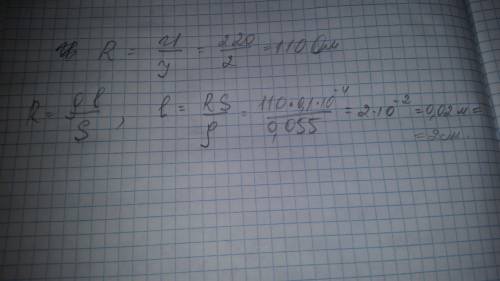 R = U/I = 220/2 = 110 Ом
R = ρl/S , l = RS/ρ = 110·0,1·10⁻⁴/0,055 = 2·10⁻² = 0,02 м =
= 2 см.